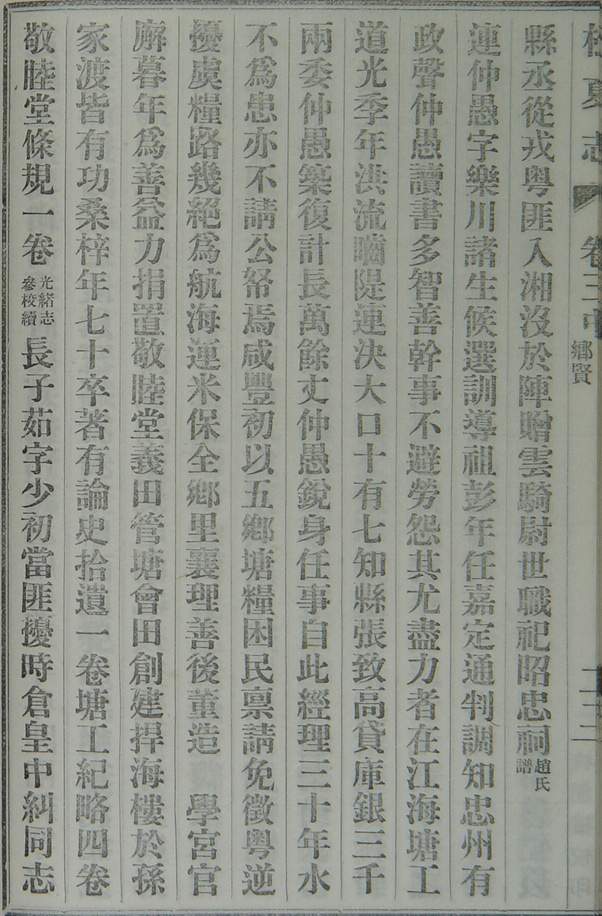 松夏志 卷三中 鄉賢 二三
縣丞從戎粵匪入湘沒於陣贈雲騎尉世職祀昭忠祠趙氏譜
連仲愚字樂川諸生候選訓導祖彭年任嘉定通判調知忠州有
政聲仲愚讀書多智善幹事不避勞怨其尤盡力者在江海塘工
道光季年洪流嚙隄連決大口十有七知縣張致高貸庫銀三千
兩委仲愚築復計長萬餘丈仲愚銳身任事自此經理三十年水
不為患亦不請公帑焉咸豐初以五鄉塘糧困民禀請免徵粵逆
擾虞糧路幾絕為航海運米保全鄉里襄理善後董造 學宮官
廨暮年為善益力捐置敬睦堂義田管塘會田創建捍海樓於孫
家渡皆有功桑梓年七十卒著有論史拾遺一卷塘工紀略四卷
敬睦堂條規一卷光緒志參校續長子茹字少初當匪擾時倉皇中糾同志